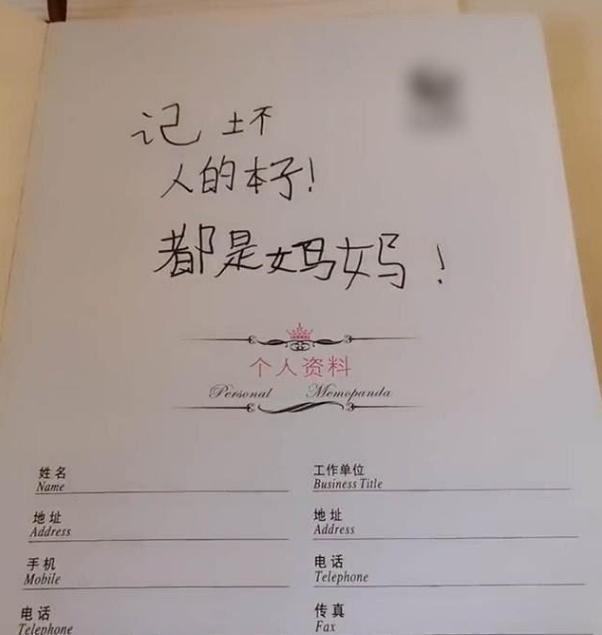 记 坏
人的本子!
都是妈妈!
个人资料
Personal Memopanda
姓名 工作单位
Name Business Title
地址 地址
Address Address
手机 电话
Mobile Telephone
电话 传真
Telephone Fax